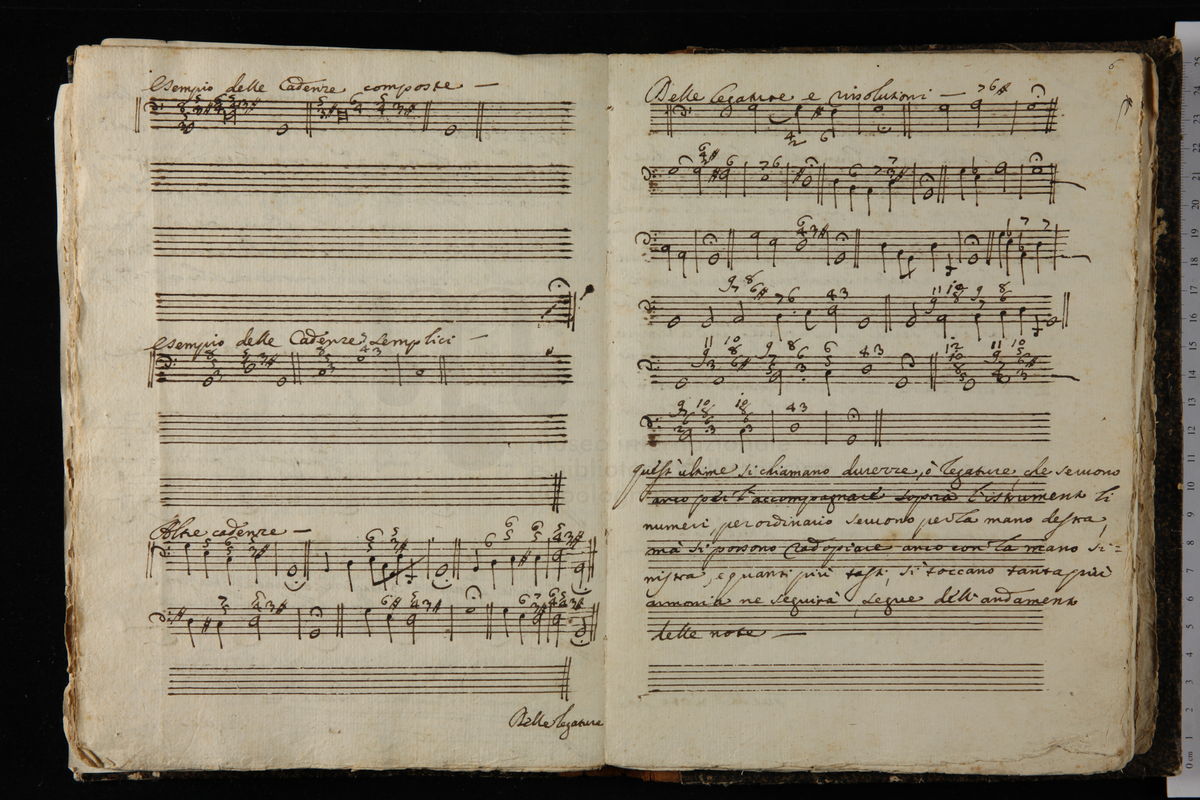 Esempio delle Cadenze composte
Esempio delle Cadenze Semplici
Altre cadenze
Delle legature
6
Delle legature e rissolutioni
quest'ultime si chiamano durezze, ò legature, che seruono
anco per l'accompagnare sopra l'istrumento li
numeri per ordinario seruono per la mano destra,
mà si possono radopiare anco con la mano si=
nistra, e quanti più tasti, si toccano tanta più
armonia ne seguirà, segue dell'andamento
delle note